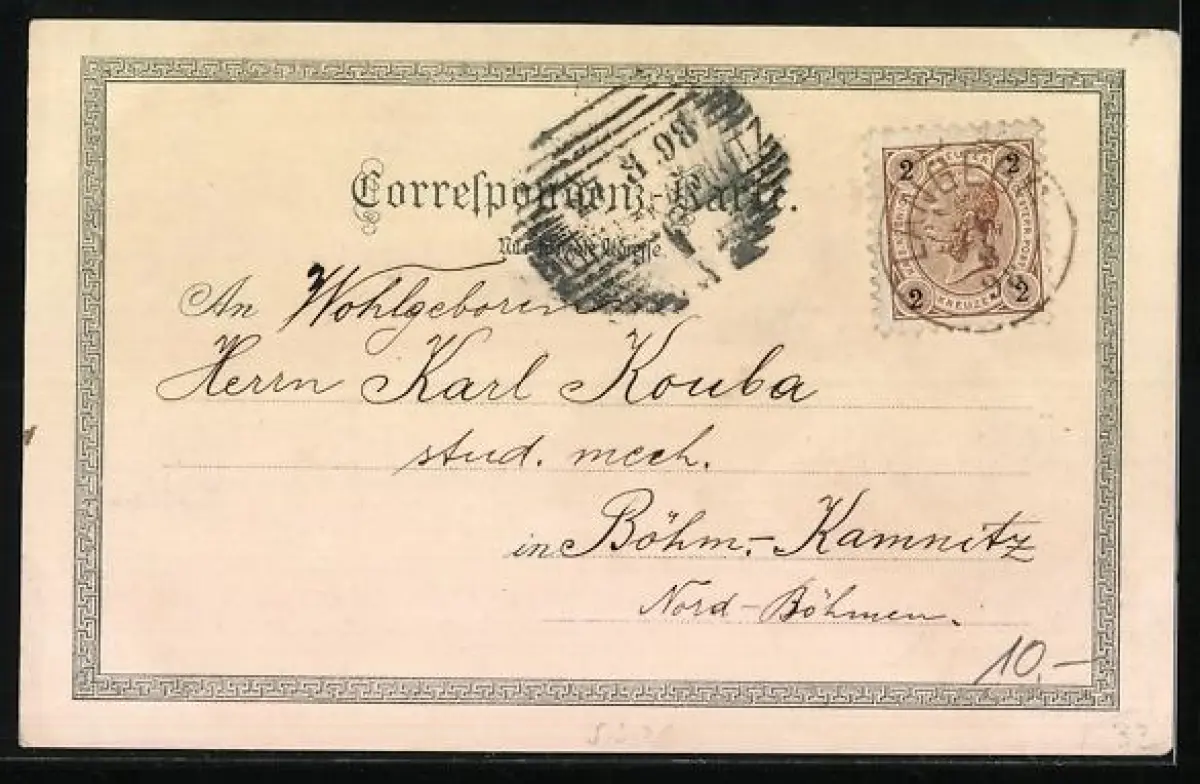 Correspondenz-Karte.
Nur für die Adresse
2 KREUZER 2
2 KREUZER 2
8 98
An Wohlgeboren
Herrn Karl Kouba
stud. mech.
in Böhm.-Kamnitz
Nord-Böhmen.
10.-